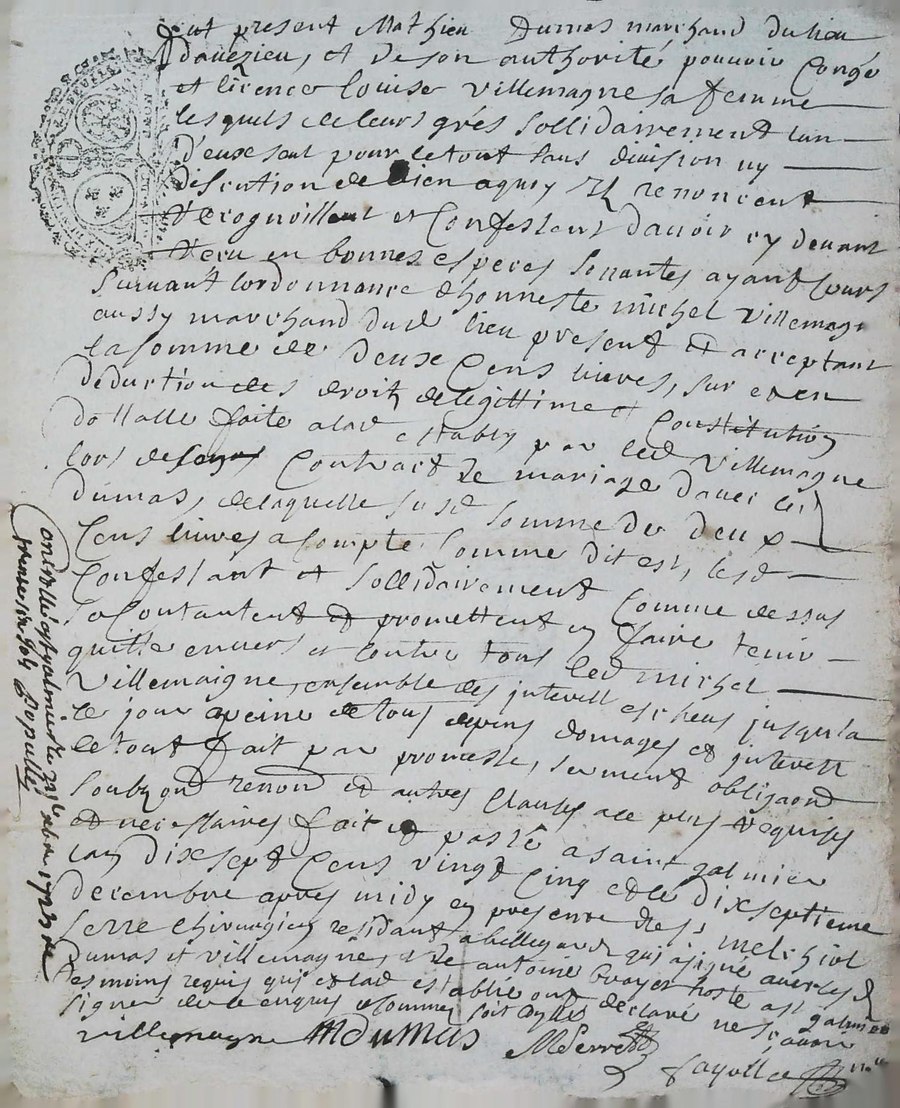 fut present Mathieu Dumas marchand du lieu
davezieu, et de son authorité pouvoir Congé
et licence louise villemagne sa femme
lesquels de leurs grés sollidairement lun
d'eux seul pour le tout sans division ny
discution de bien aquoy Ilz renoncent
recognoissent et Confessent d'avoir cy devant
Receu en bonnes especes sonnantes ayant Cours
suivant lordonnance d'honneste michel villemagne
aussy marchand dud lieu present et acceptant
la somme de deux Cens livres, sur et en
deduction des droitz de legittime et Constitution
dottalle faite a lad establie par led villemagne
lors de Contract de mariage d'avec led
Dumas, de laquelle susd somme de deux
Cens livres a Compte Comme dit est, lesd
Confessant et sollidairement Comme dessus
se Contantent et promettent en faire tenir
quitte envers et contre tous led michel
villemaigne, ensemble des interest escheus jusqu'a
ce jour a peine de tous depens domages et interest
le tout fait par promesse, serment obligaon
renon et autres Clauses a ce plus requises
et necessaires fait et passé a saint galmier
lan dix sept Cens vingt Cinq et le dix septieme
decembre apres midy en presence de sr melchiol
serre chirurgien residant a bellegarde qui a signé avec lesd
Dumas et villemagne, et de antoine hoste a st galmier
tesmoins requis qui et lad establie ont declaré ne scavoir
signer de ce enquis et sommés
villemagne MDUMAS MSerre
fayolle
Conterollé a st galmier le xbre 1725